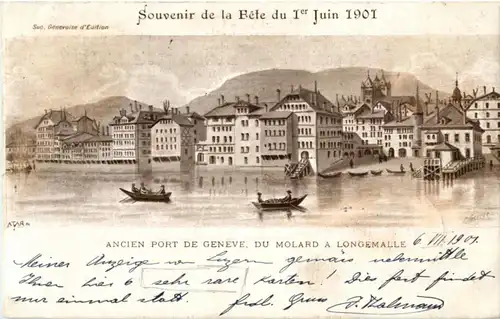 Souvenir de la Fête du 1er Juin 1901
Soc. Génevoise d'Edition
ANCIEN PORT DE GENEVE, DU MOLARD A LONGEMALLE
6 VII. 1901.
Meiner Anzeige von Luzern gemäss uebermittle
Ihnen hier 6 sehr rare Karten! Dies fest findet
nur einmal statt. frdl. Gruss